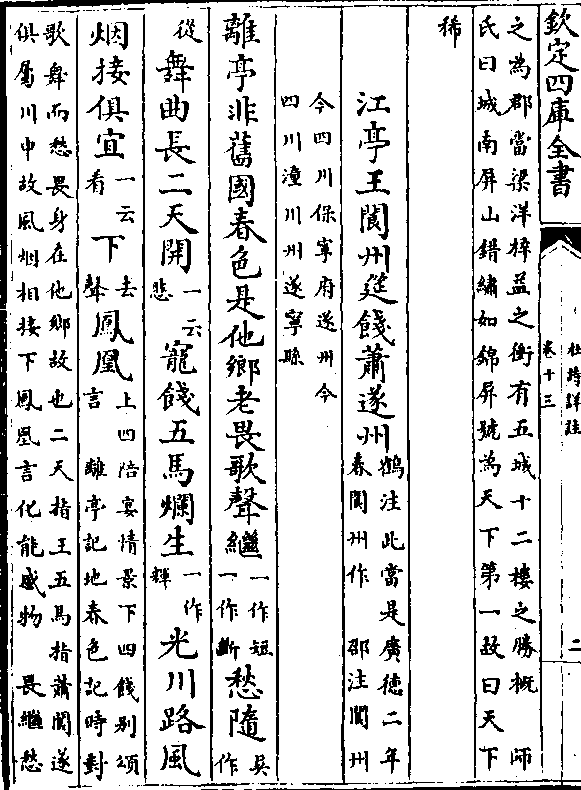 欽定四庫全書
杜詩詳註
卷十三
二
之為郡當梁洋梓益之衝有五城十二樓之勝概 師
氏曰城南屏山錯繡如錦屏號為天下第一故曰天下
稀
江亭王閬州筵餞蕭遂州鶴注此當是廣德二年
春閬州作 邵注閬州
今四川保寧府遂州今
四川潼川州遂寧縣
離亭非舊國春色是他鄉老畏歌聲繼一作短
一作斷愁隨吳
作
從舞曲長二天開一云
悲寵餞五馬爛生一作
輝光川路風
烟接俱宜一云
看下去
聲鳳凰上四陪宴情景下四餞別頌
言 離亭記地春色記時對
歌舞而愁畏身在他鄉故也二天指王五馬指蕭閬遂
俱屬川中故風烟相接下鳳凰言化能感物 畏繼愁